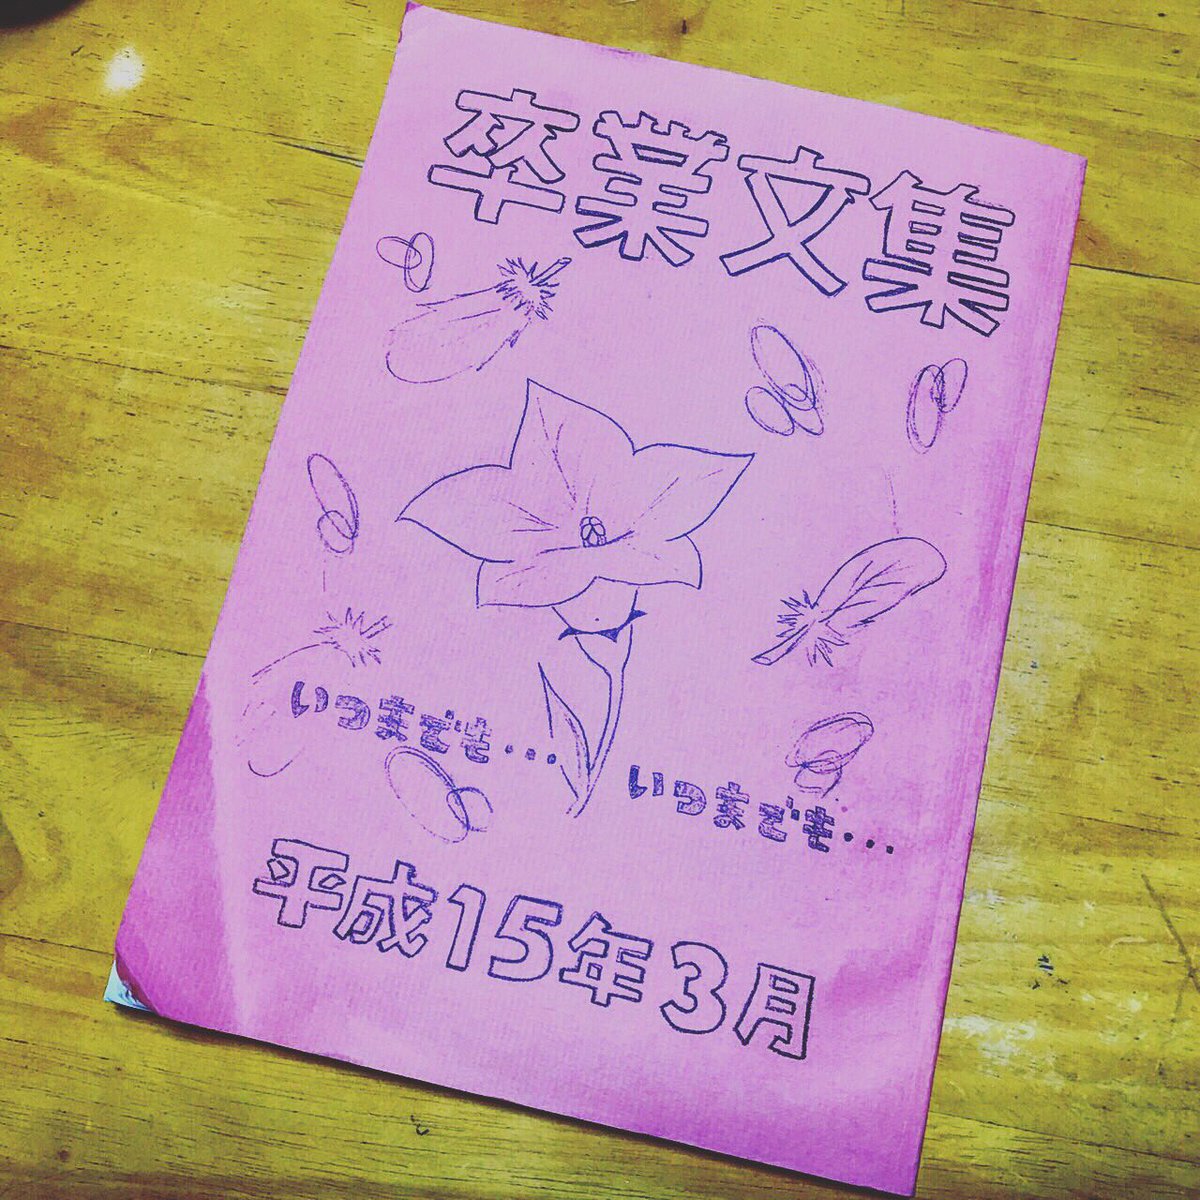 卒業文集
いつまでも・・・
いつまでも・・・
平成15年3月